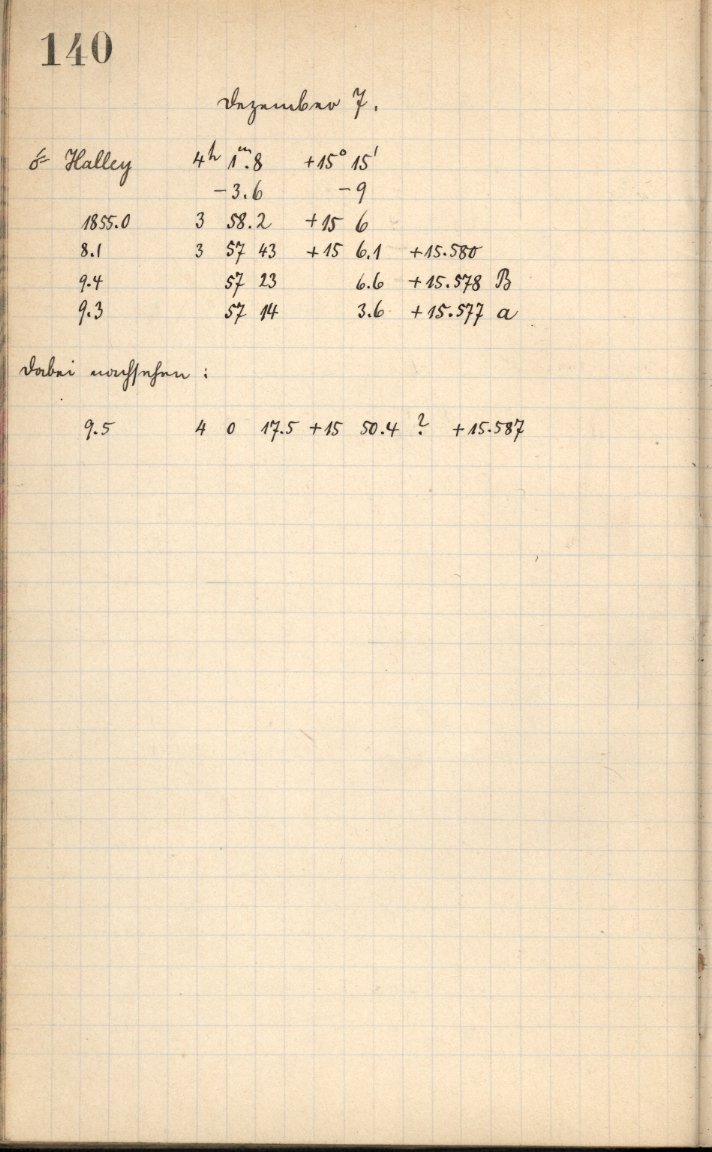 140
Dezember 7.
☄ Halley 4ʰ 1ᵐ.8 +15° 15'
−3.6 −9
1855.0 3 58.2 +15 6
8.1 3 57 43 +15 6.1 +15.580
9.4 57 23 6.6 +15.578 B
9.3 57 14 3.6 +15.577 a
Dabei nachsehen :
9.5 4 0 17.5 +15 50.4 ? +15.587